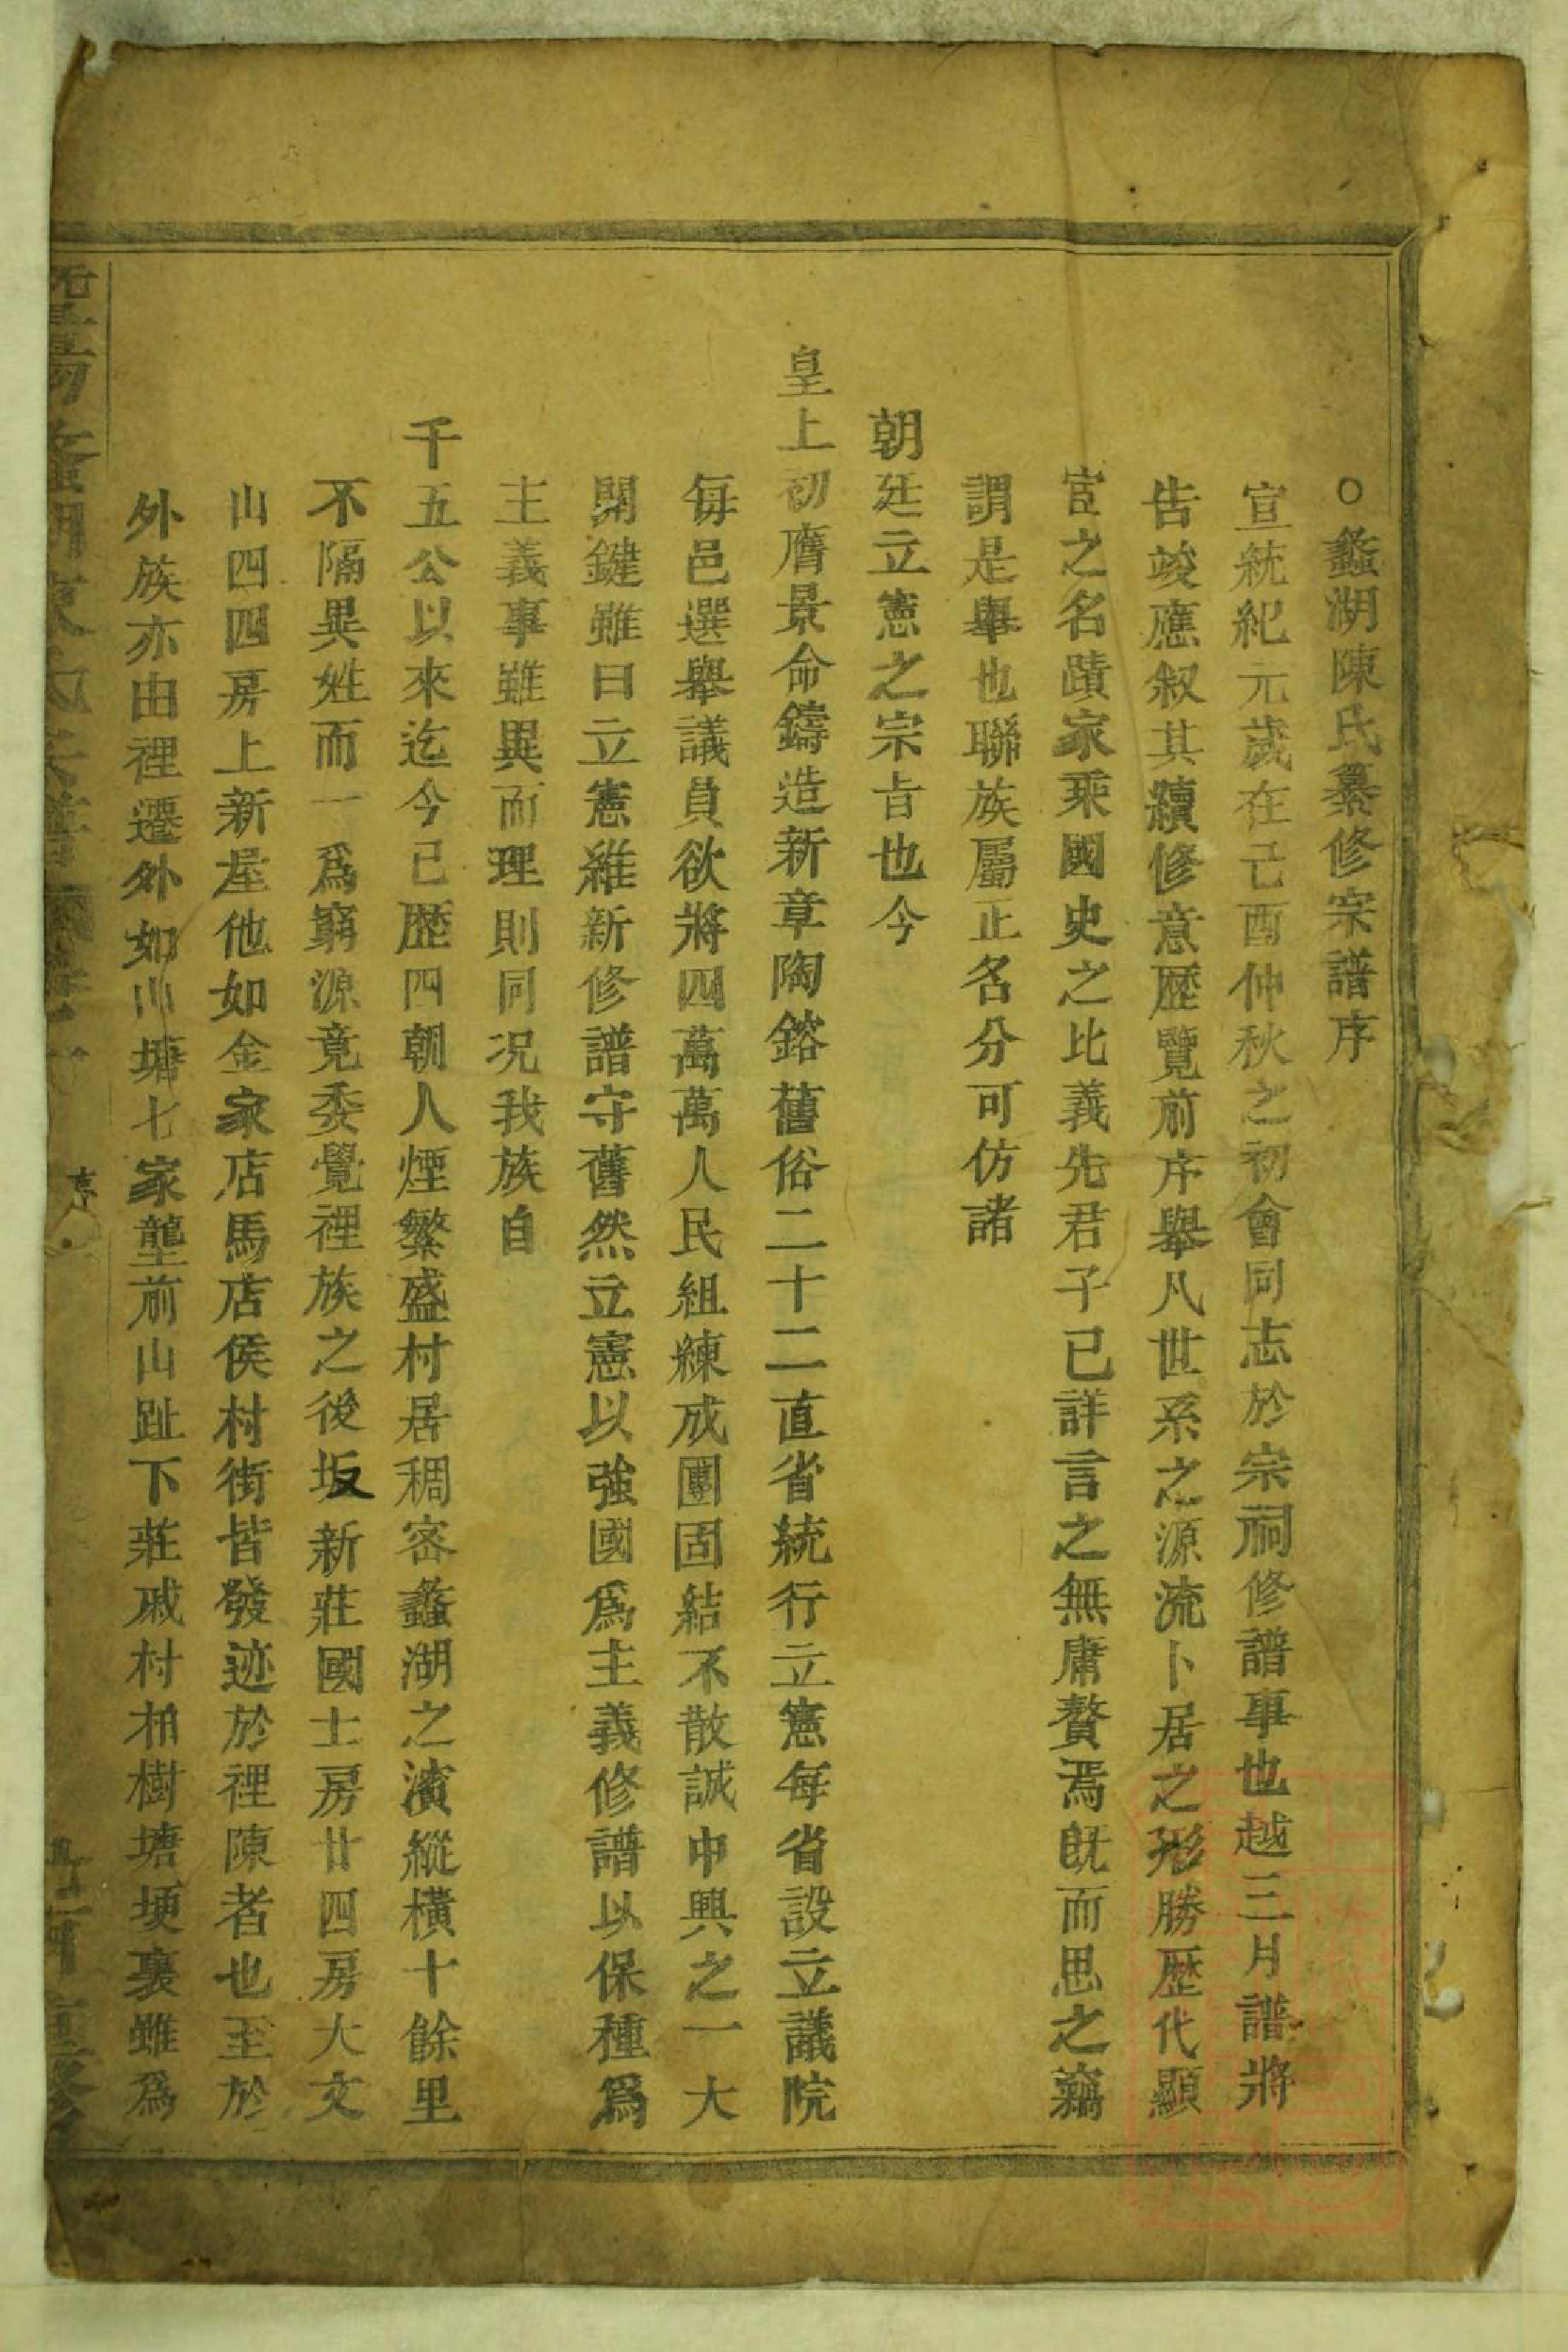 ○蠡湖陳氏纂修宗譜序
宣統紀元歲在己酉仲秋之初會同志於宗祠修譜事也越三月譜將
告竣應叙其續修意歷覽前序舉凡世系之源流卜居之形勝歷代顯
宦之名蹟家乘國史之比義先君子已詳言之無庸贅焉旣而思之竊
謂是舉也聯族屬正名分可仿諸
朝廷立憲之宗旨也今
皇上初膺景命鑄造新章陶鎔舊俗二十二直省統行立憲每省設立議院
每邑選舉議員欲將四萬萬人民組練成團固結不散誠中興之一大
関鍵雖曰立憲維新修譜守舊然立憲以強國爲主義修譜以保種爲
主義事雖異而理則同况我族自
千五公以來迄今已歷四朝人煙繁盛村居稠密蠡湖之濱縱橫十餘里
不隔異姓而一爲窮源竟委覺裡族之後坂新莊國士房廿四房大文
山四四房上新屋他如金家店馬店侯村街皆發迹於裡陳者也至於
外族亦由裡遷外如川塘七家壟前山趾下莊戚村柏樹塘埂裏雖爲
序